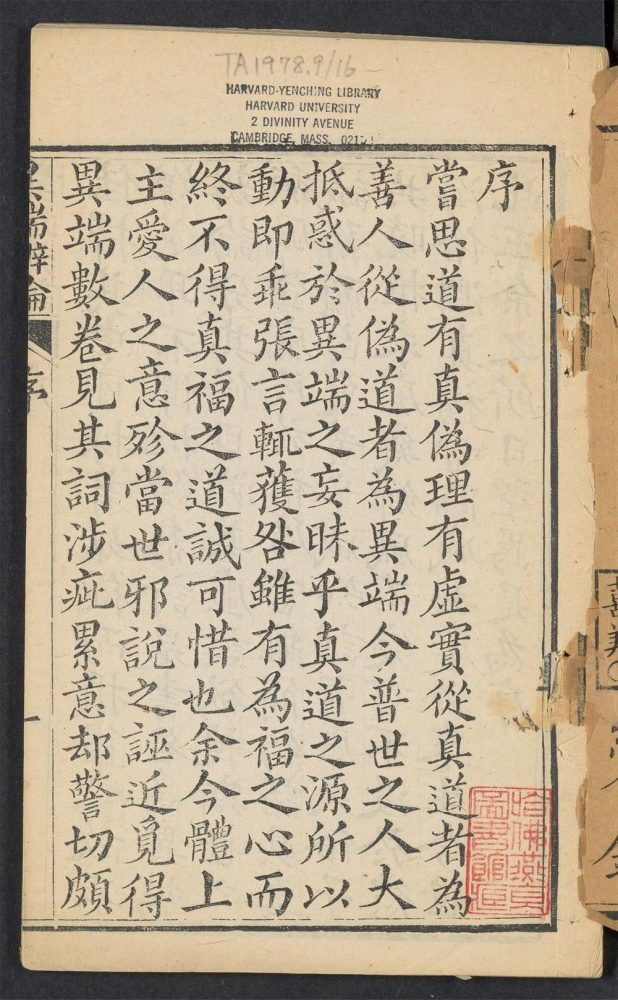 TA1978.9/16
HARVARD-YENCHING LIBRARY
HARVARD UNIVERSITY
2 DIVINITY AVENUE
CAMBRIDGE, MASS.
序
嘗思道有真偽理有虛實從真道者為
善人從偽道者為異端今普世之人大
抵惑於異端之妄昧乎真道之源所以
動即乖張言輒獲咎雖有為福之心而
終不得真福之道誠可惜也余今體上
主愛人之意殄當世邪說之誣近覓得
異端數卷見其詞涉疵累意却警切頗
異端辯論
序
一
哈佛燕京
圖書館